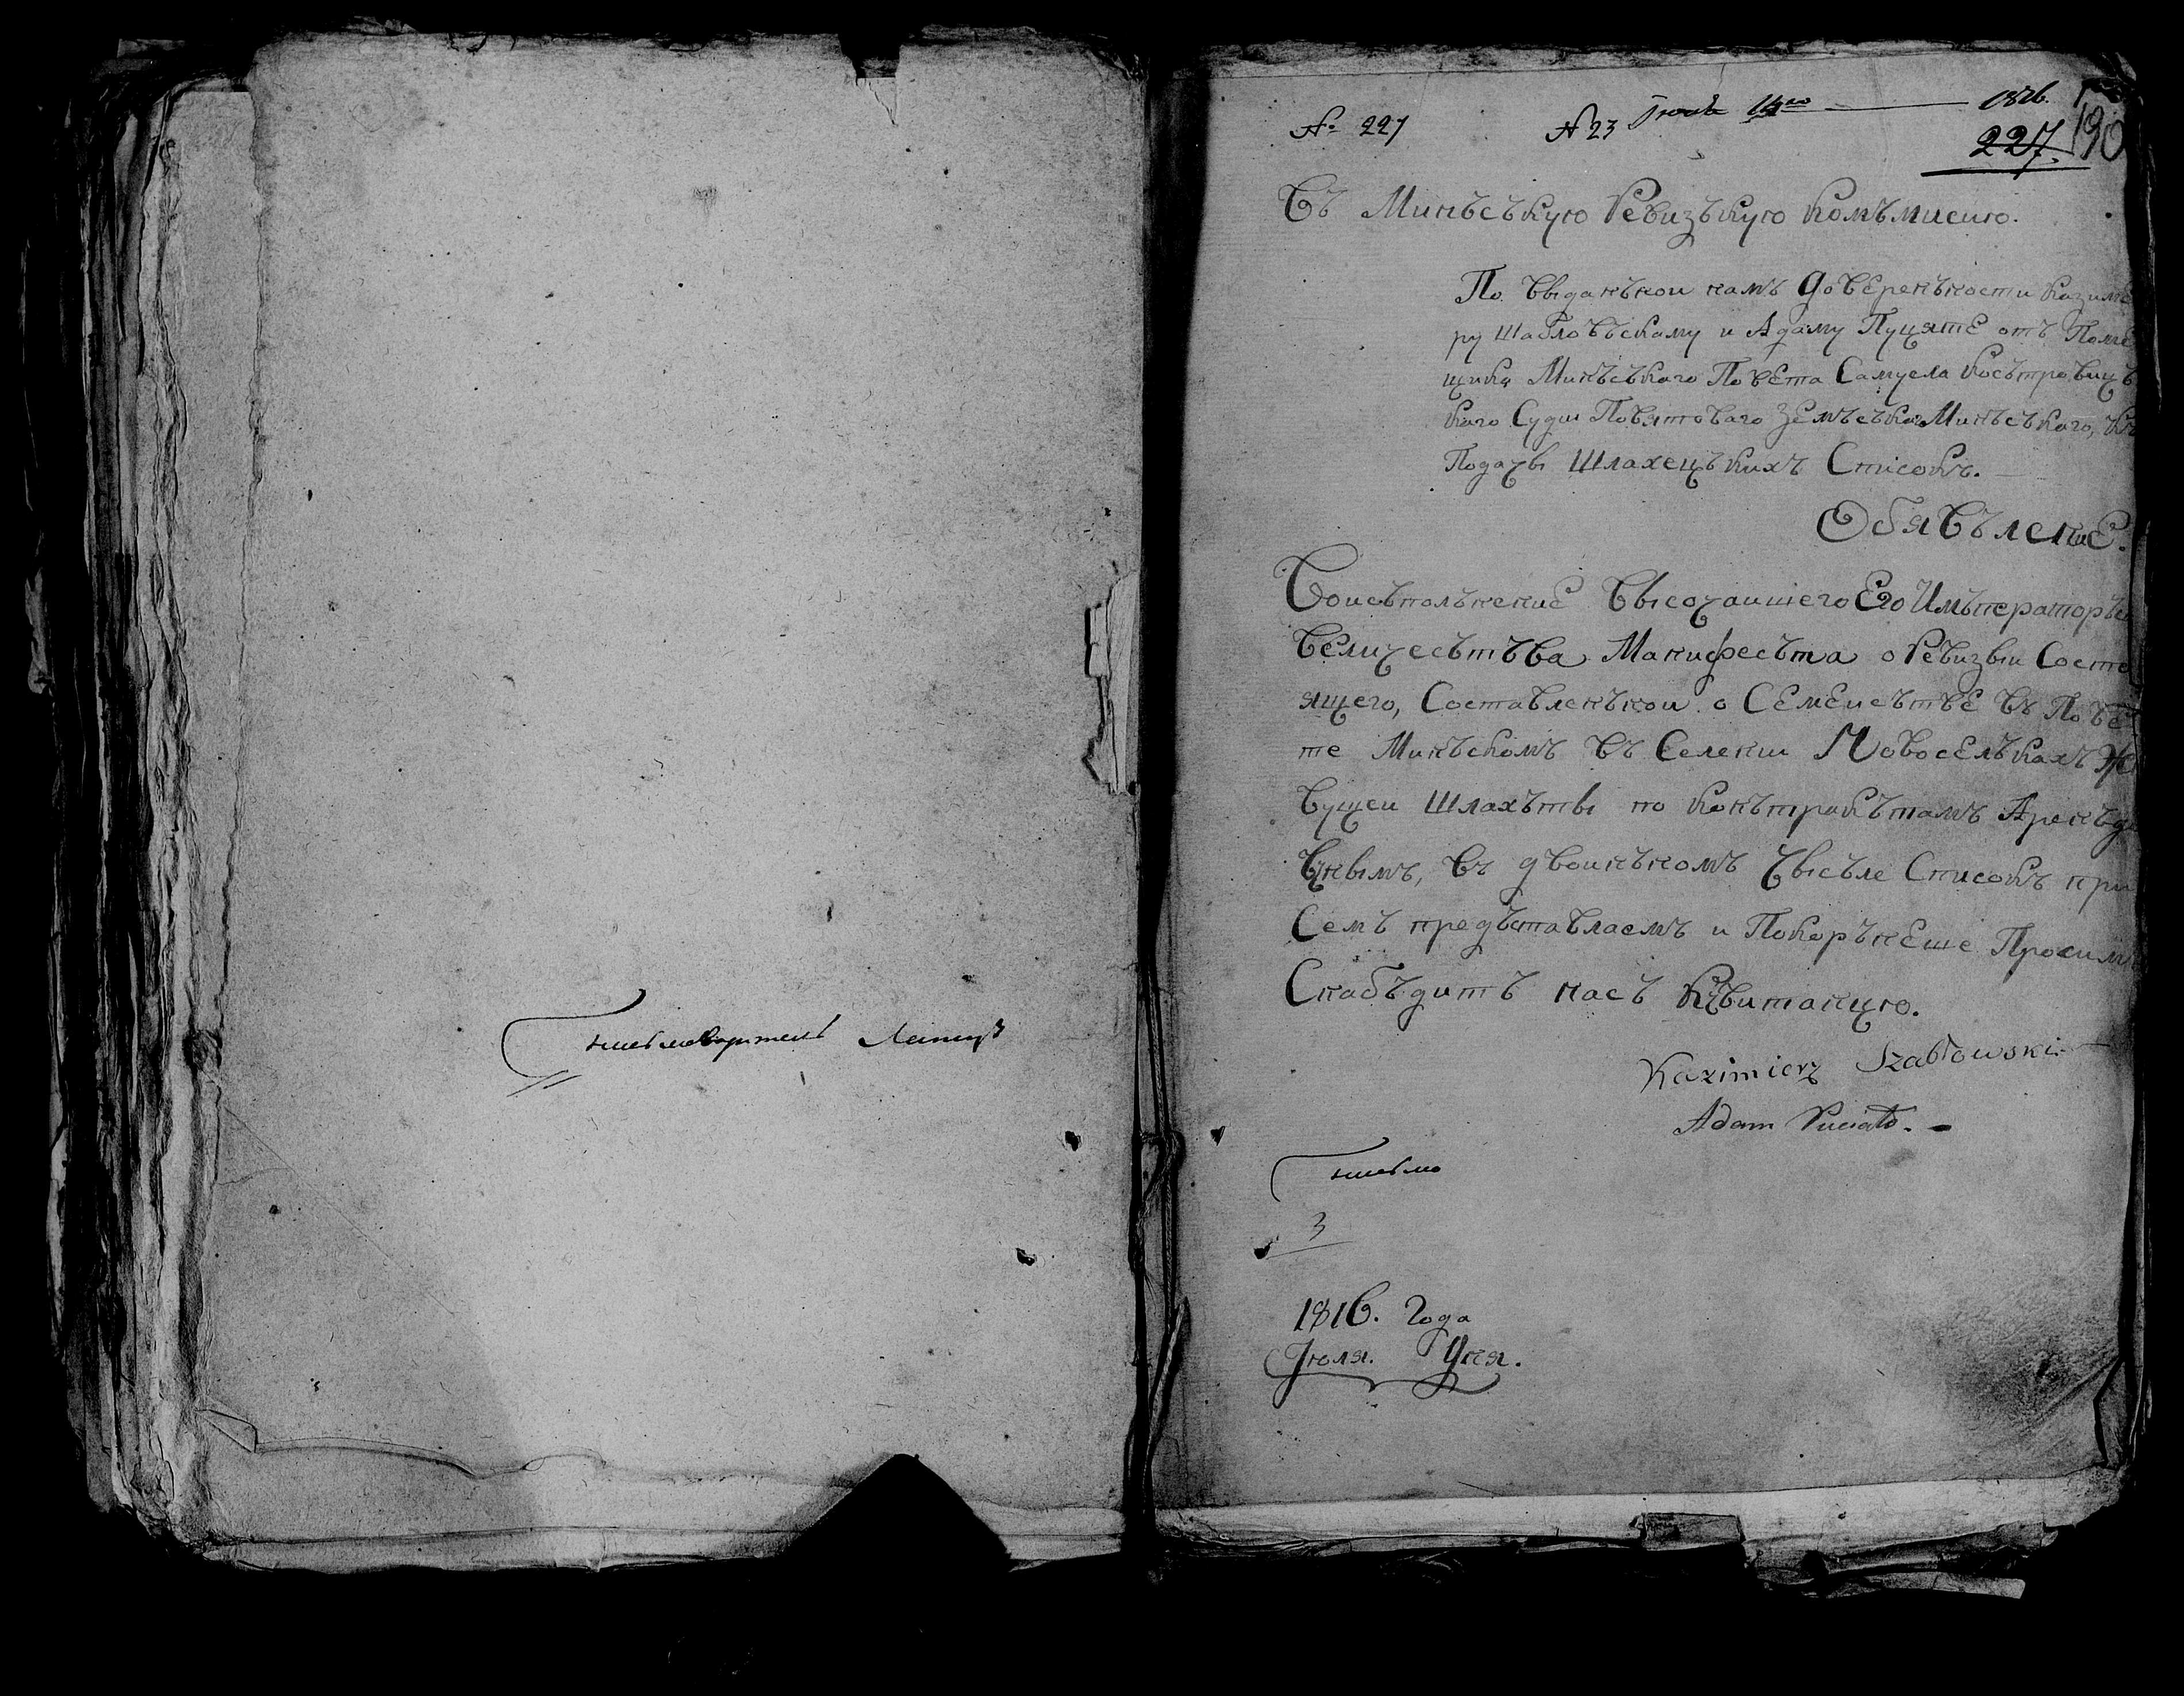 Письмоводитель
№ 227 № 23 Июля 14го 1816.
227. 190
Въ Минъсъкую Ревизъкую Комъмисию.
По выданънои намъ довЕренъности Казимѣ
ру ШаблоВъскаму и Адаму ПуцятЕ отъ Помѣ
щика Минъсъкаго ПовЕта Самуела Косътровицъ
каго Судіи Повятоваго ЗЕмъсъкаго Минъсъкаго, къ
Подачы Шлахецъкихъ Списокъ.
ОбяВъленіЕ.
ВоисъполънениЕ Высочаишего Его Имъператоръ
Величесътъва Манифесъта о Ревизыи Состо
ящего, Составленънои о СЕмЕисътвЕ въ Повѣ
те Минъскомъ въ Селении НовосЕлъкахъ Жи
вущеи Шлахъты по Конътракътамъ Аренъдо
внымъ, въ двоинъномъ Чысъле Списокъ при
Семъ предъставлаемъ и ПокорънЕше Просимъ
Снабъдитъ насъ Квитанцую.
Kazimierz Szabłowski
Adam Puciato.
Письмо
3
1816. Года
Июля. Дня.